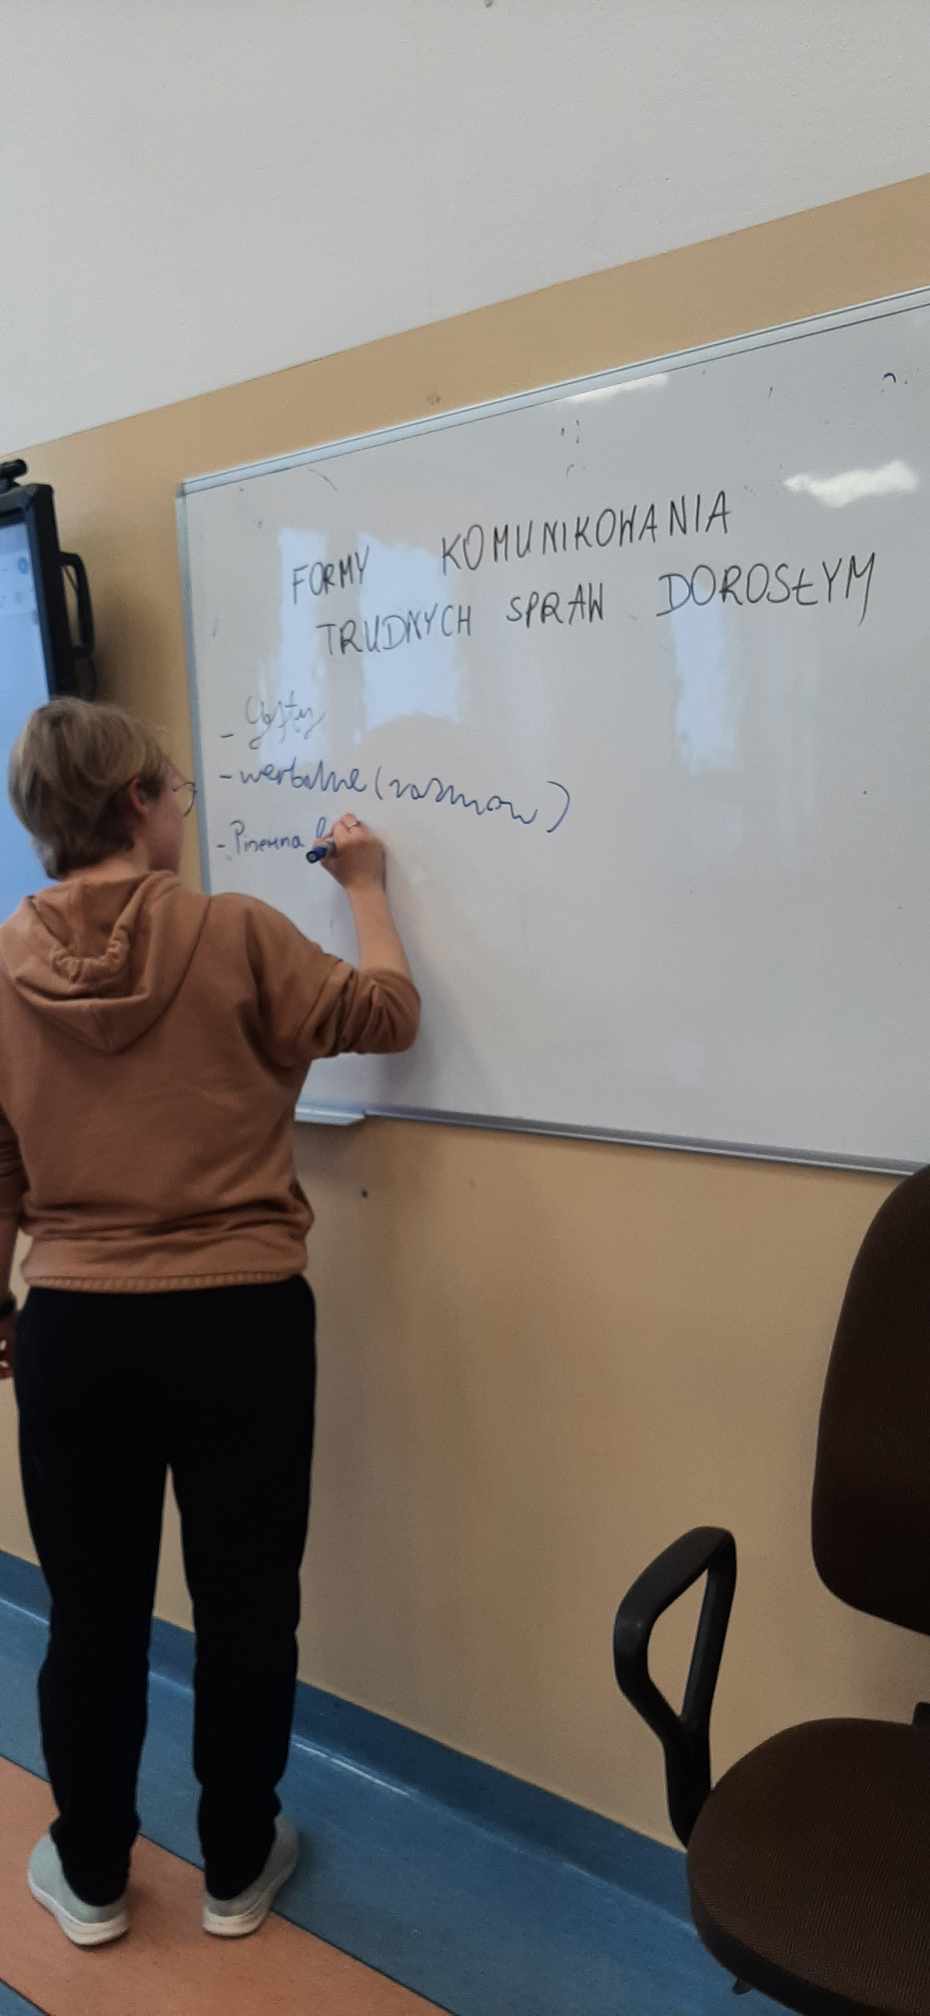 FORMY KOMUNIKOWANIA
TRUDNYCH SPRAW DOROSŁYM
-
- werbalne (rozmow)
- Pisemna